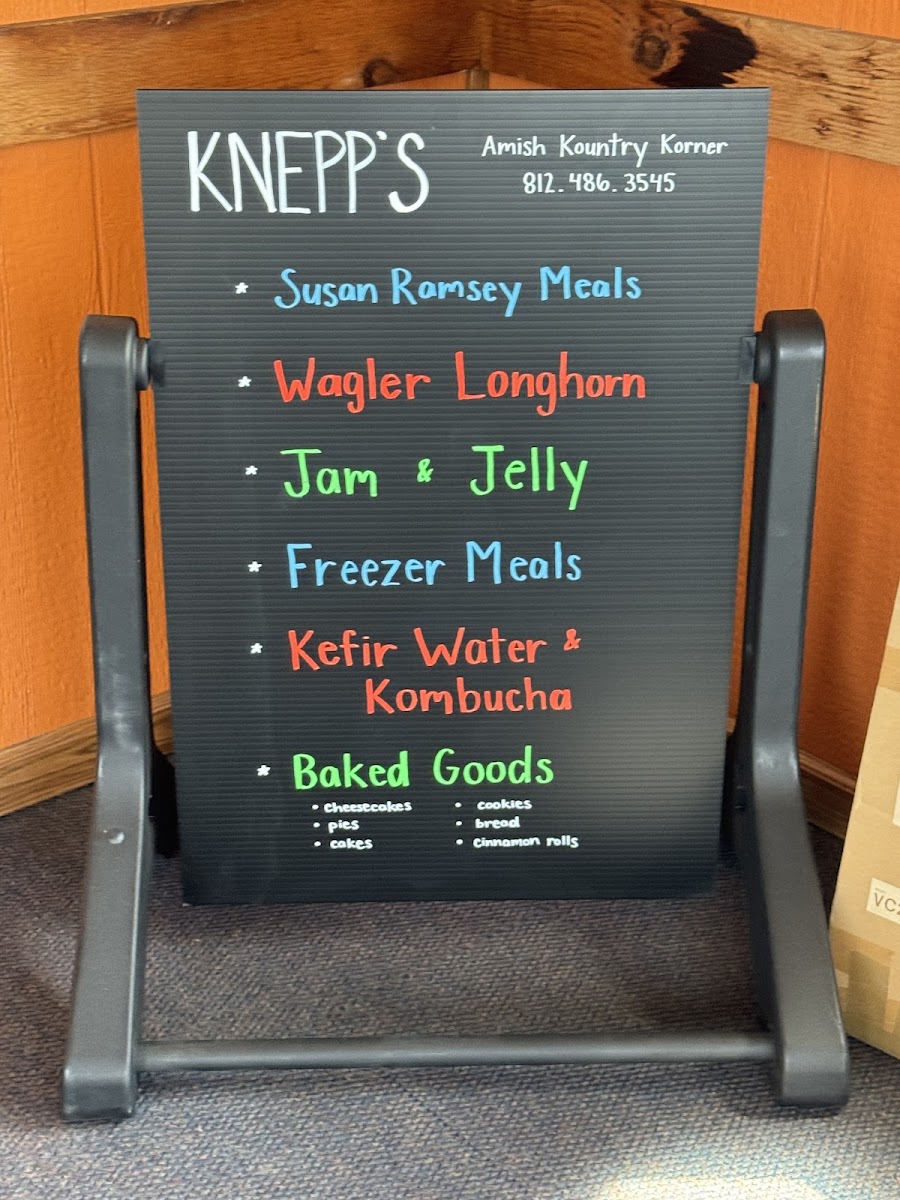 KNEPP'S
Amish Kountry Korner
812.486.3545
* Susan Ramsey Meals
* Wagler Longhorn
* Jam & Jelly
* Freezer Meals
* Kefir Water &
Kombucha
* Baked Goods
• cheesecakes
• pies
• cakes
• cookies
• bread
• cinnamon rolls